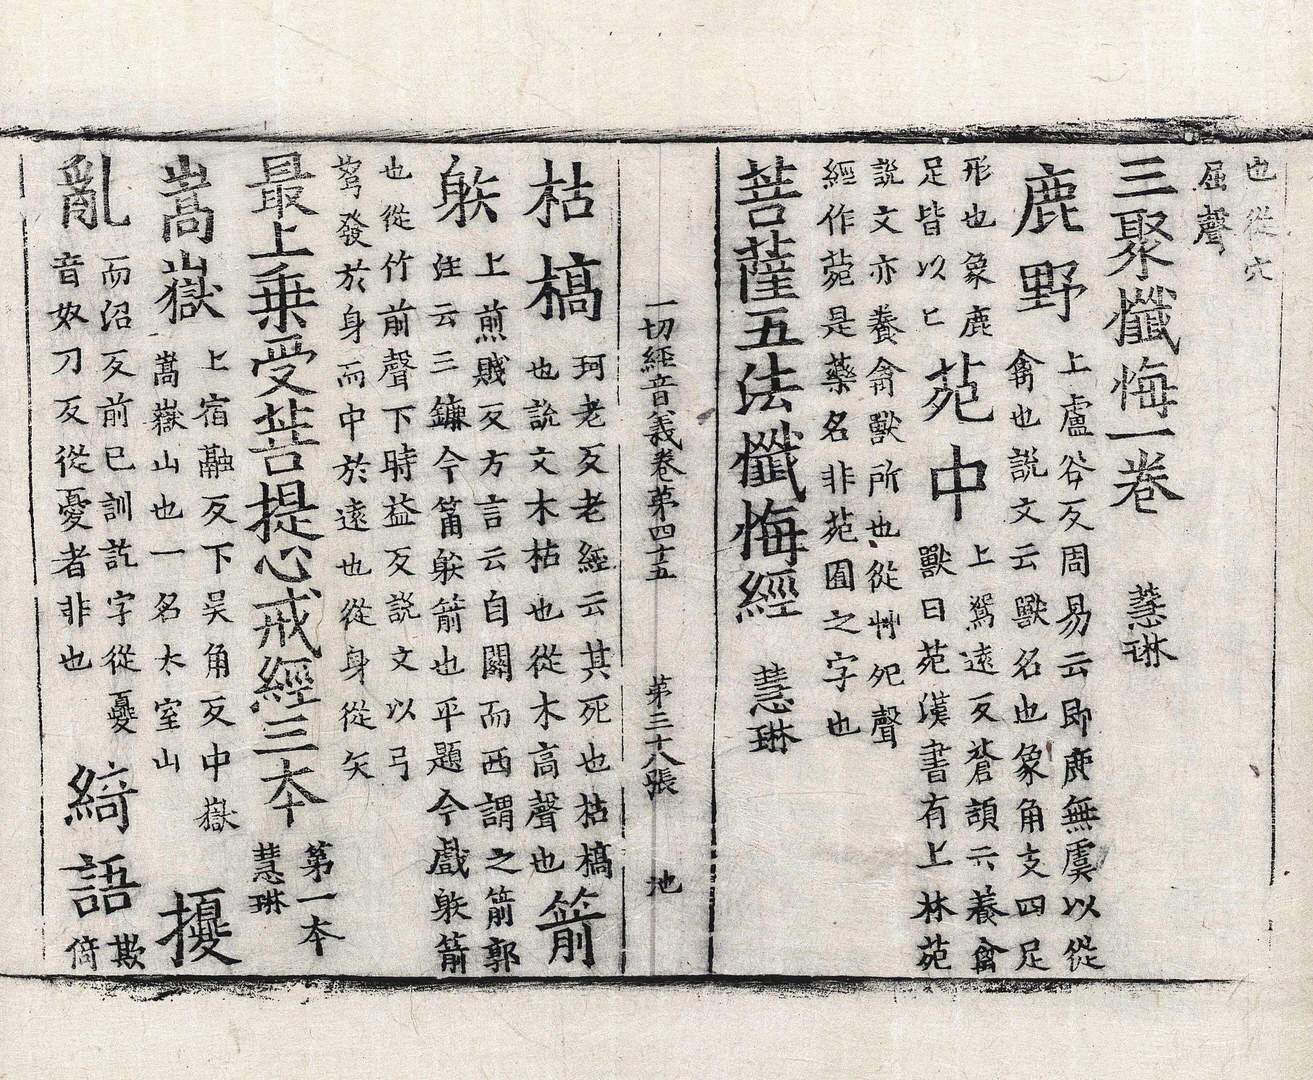 也從穴
屈聲
三聚懺悔一卷 慧琳
鹿野 上盧谷反周易云即鹿無虞以從
禽也說文云獸名也象角支四足
形也象鹿
足皆以匕
苑中 上鴛遠反蒼頡云養禽
獸曰苑漢書有上林苑
說文亦養禽獸所也從艸夗聲
經作菀是藥名非苑囿之字也
菩薩五法懺悔經 慧琳
一切經音義卷第四十五 第三十八張 池
枯槁 珂老反老經云其死也枯槁
也說文木枯也從木高聲也
箭
䠶 上煎賤反方言云自關而西謂之箭郭
注云三鐮今筩䠶箭也平題今戲䠶箭
也從竹前聲下時益反說文以弓
弩發於身而中於遠也從身從矢
最上乗受菩提心戒經三本 第一本
慧琳
嵩嶽 上宿融反下吴角反中嶽
嵩嶽山也一名太室山
擾
亂 而沼反前已訓訖字從夒
音奴刀反從憂者非也
綺語 欺
倚